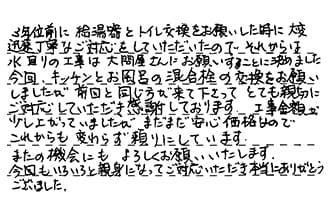 3年位前に給湯器とトイレ交換をお願いした時に大変
迅速丁寧なご対応をしていただいたので、それからは
水回りの工事は大岡屋さんにお願いすることに決めました
今回、キッチンとお風呂の混合栓の交換をお願い
しましたが前回と同じ方が来て下さってとても親切に
ご対応していただき感謝しております。工事金額が
少し上がっていましたがまだまだ安心価格なので
これからも変わらず頼りにしています。
またの機会にもよろしくお願いいたします。
今回もいろいろと親身になってご対応いただき本当にありがとう
ございました。